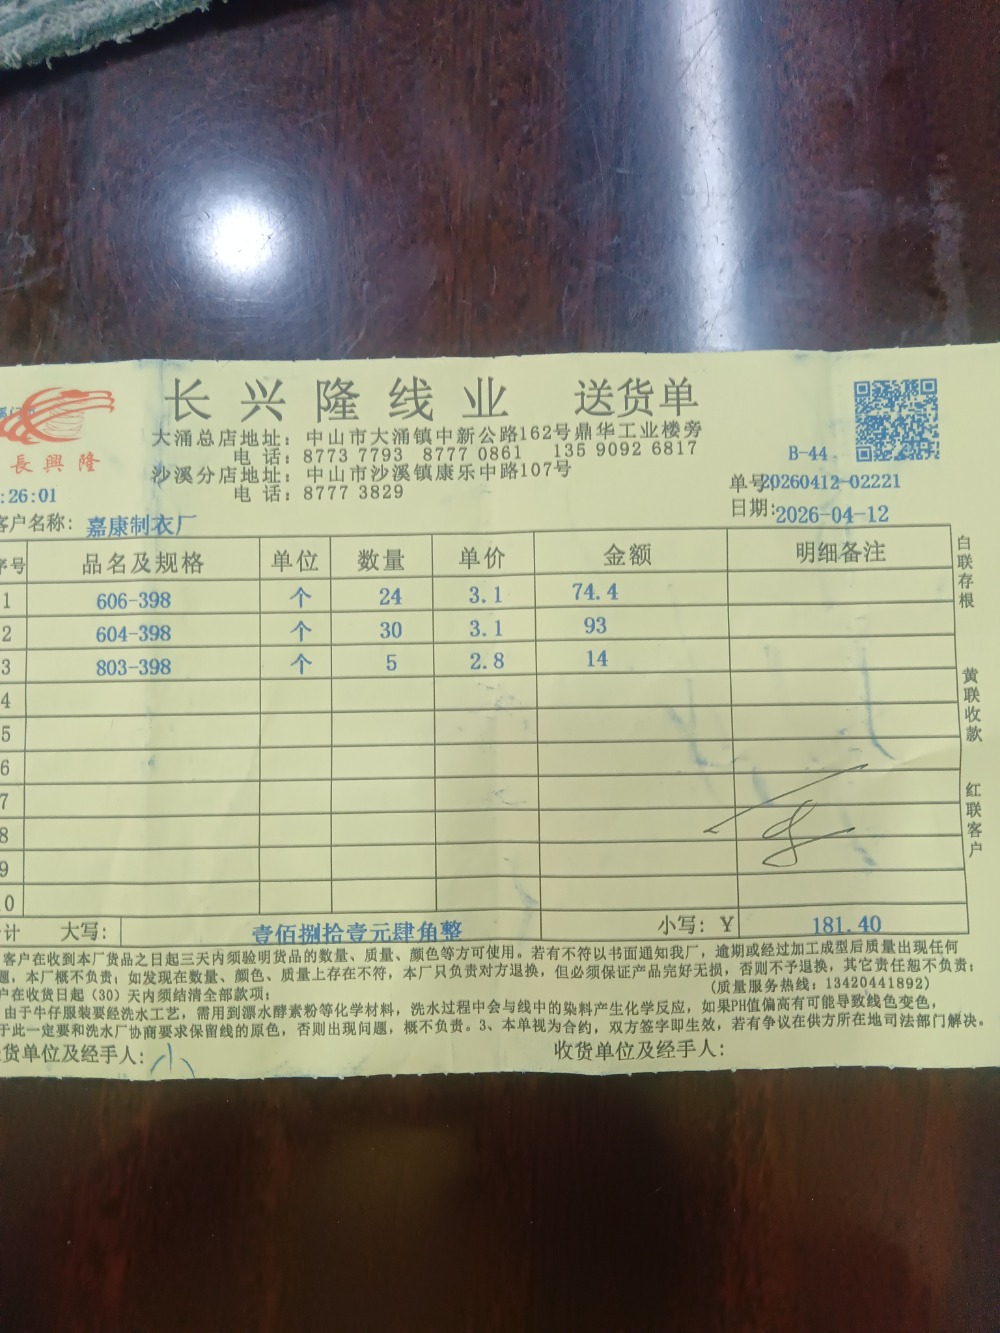 长兴隆线业 送货单
長興隆
大涌总店地址：中山市大涌镇中新公路162号鼎华工业楼旁
电 话：8773 7793 8777 0861 135 9092 6817
沙溪分店地址：中山市沙溪镇康乐中路107号
电 话：8777 3829
B-44
:26:01
单号:20260412-02221
日期:2026-04-12
客户名称：嘉康制衣厂
序号 品名及规格 单位 数量 单价 金额 明细备注
1 606-398 个 24 3.1 74.4
2 604-398 个 30 3.1 93
3 803-398 个 5 2.8 14
4
5
6
7
8
9
0
计 大写：壹佰捌拾壹元肆角整 小写：￥ 181.40
白联存根
黄联收款
红联客户
客户在收到本厂货品之日起三天内须验明货品的数量、质量、颜色等方可使用。若有不符以书面通知我厂，逾期或经过加工成型后质量出现任何
题，本厂概不负责；如发现在数量、颜色、质量上存在不符，本厂只负责对方退换，但必须保证产品完好无损，否则不予退换，其它责任恕不负责；
户在收货日起（30）天内须结清全部款项； （质量服务热线：13420441892）
由于牛仔服装要经洗水工艺，需用到漂水酵素粉等化学材料，洗水过程中会与线中的染料产生化学反应，如果PH值偏高有可能导致线色变色，
于此一定要和洗水厂协商要求保留线的原色，否则出现问题，概不负责。3、本单视为合约，双方签字即生效，若有争议在供方所在地司法部门解决。
货单位及经手人：小 收货单位及经手人：